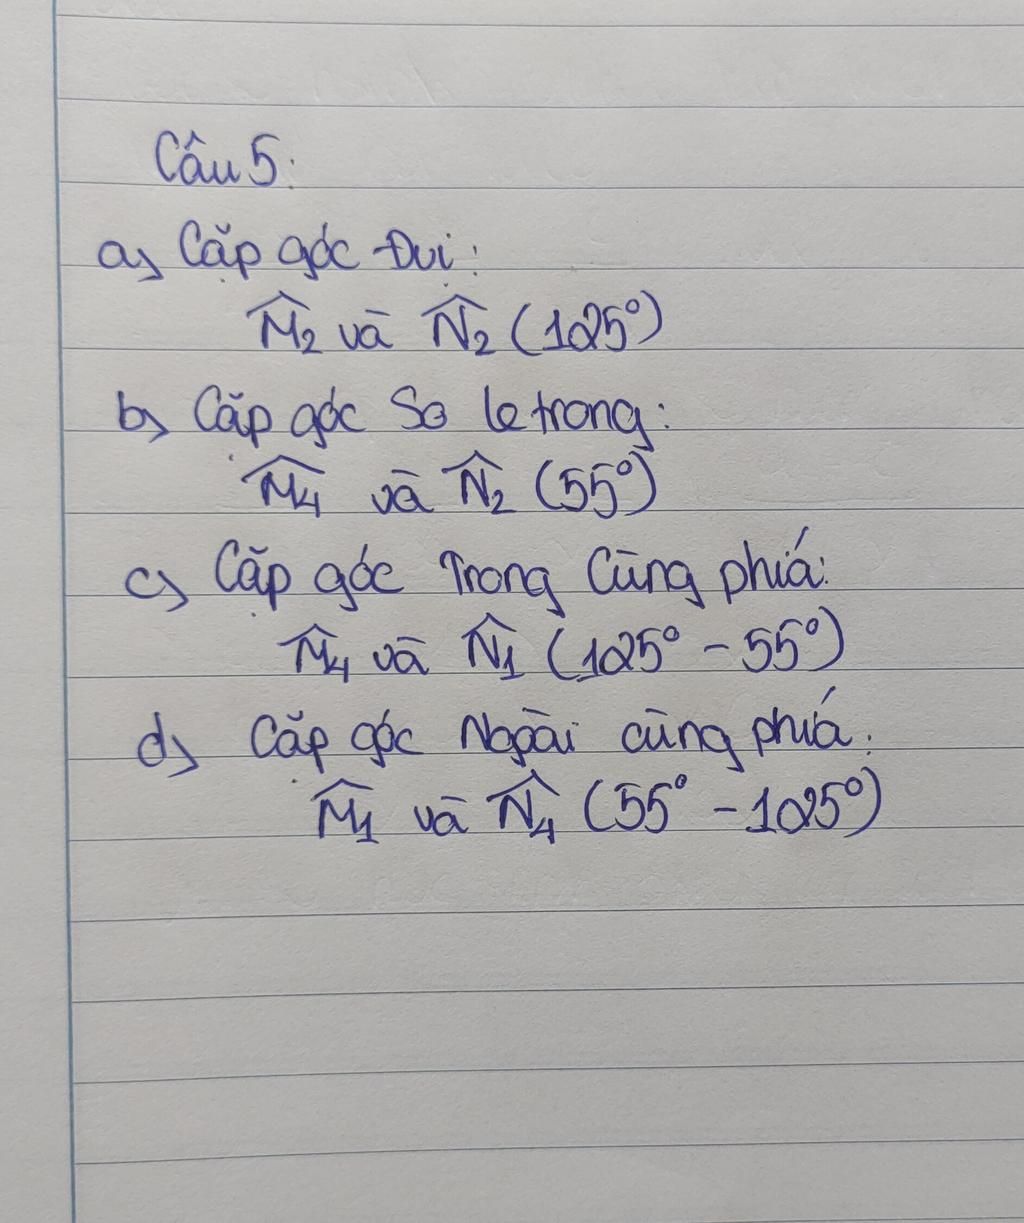 Câu 5:
a) Cặp góc Đvị:
M̂₂ và N̂₂ (125°)
b) Cặp góc So le trong:
M̂₄ và N̂₂ (55°)
c) Cặp góc Trong Cùng phiá:
M̂₄ và N̂₁ (125° - 55°)
d) Cặp góc Ngoài cùng phiá:
M̂₁ và N̂₄ (55° - 125°)